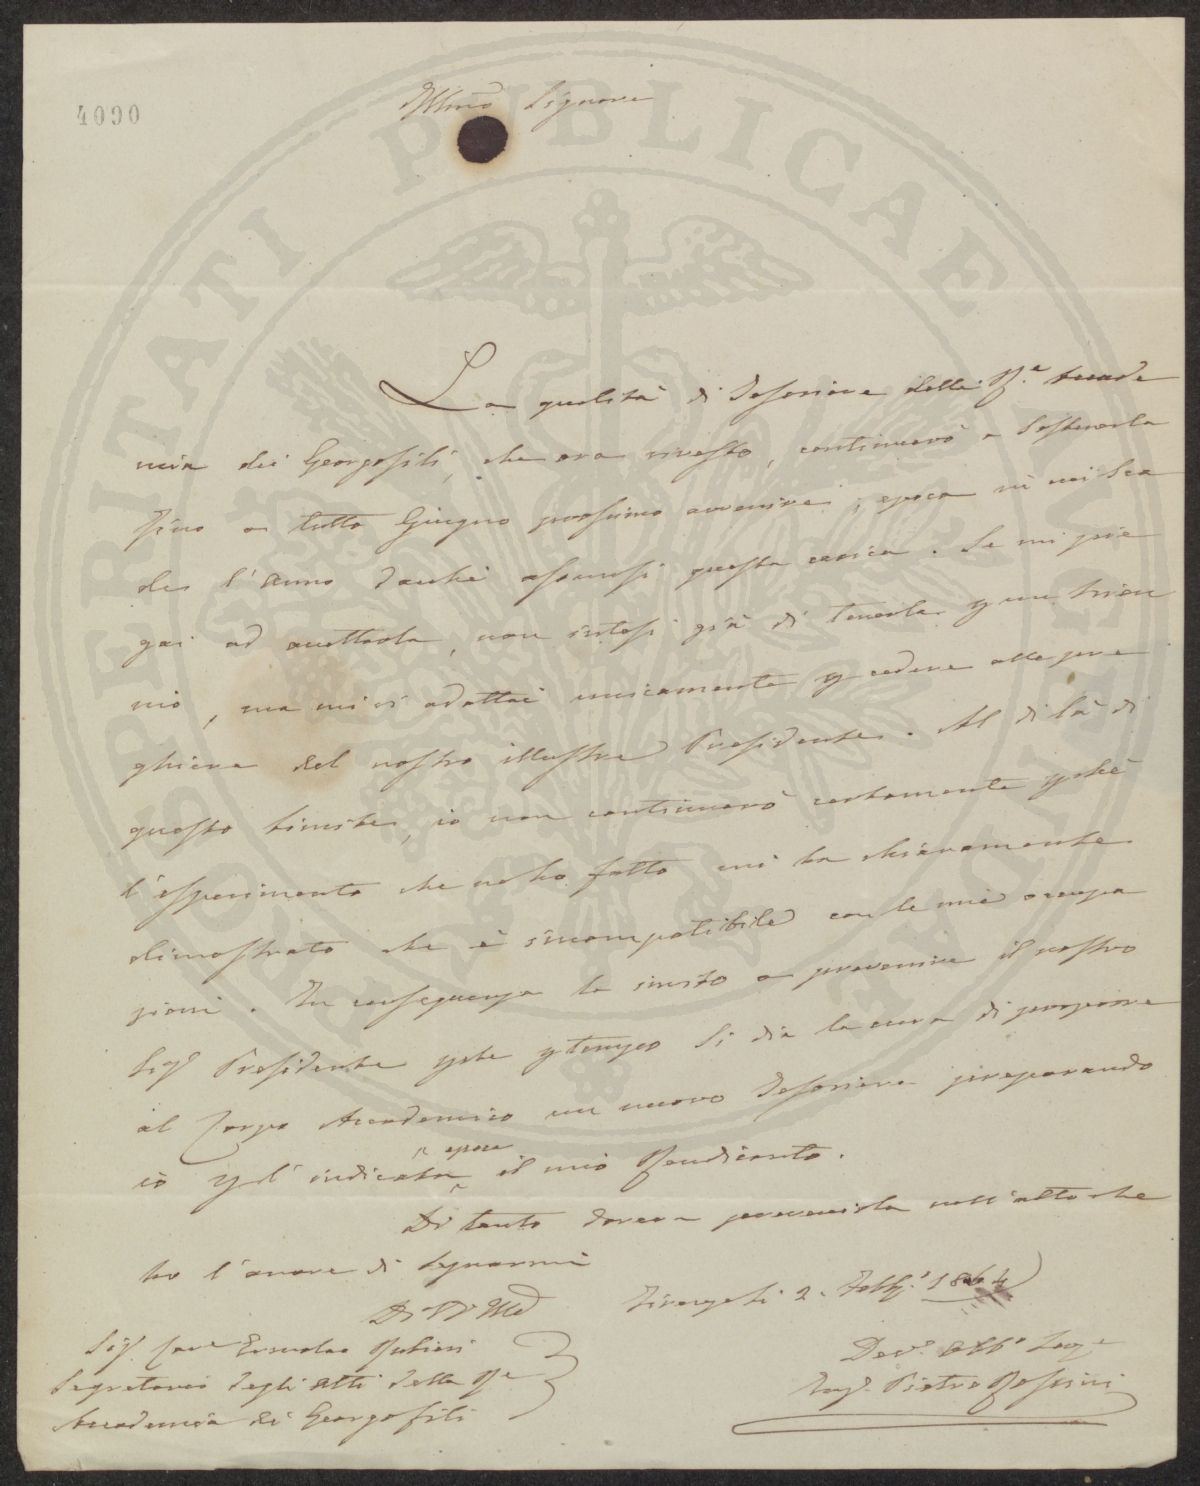 4090
Illmo Signore
La qualità di Tesoriere della R.e Accade
mia dei Georgofili, che ora rivesto, continuerò a sostenerla
fino a tutto Giugno prossimo avvenire, epoca in cui sca
de l'anno dacché assunsi questa carica. Se mi pie
gai ad accettarla, non intesi già di tenerla p un trien
nio, ma mi vi adattai unicamente p cedere alle pre
ghiere del nostro illustre Presidente. Al di là di
questo limite, io non continuerò certamente pché
l'esperimento che ne ho fatto mi ha chiaramente
dimostrato che è incompatibile con le mie occupa
zioni. In conseguenza la invito a prevenire il nostro
Sigr Presidente pche p tempo si dia la cura di proporre
al Corpo Accademico un nuovo Tesoriere preparando
io p l'indicata epoca il mio Rendiconto.
Di tanto dovea prevenirla nell'atto che
ho l'onore di segnarmi
Di V. S. Illma
2. Febb.o 1864
Sigr Cave Ermolao Rubieri
Segretario degli Atti della Re
Accademia dei Georgofili
Dev.o Obb.o
Ing.e Pietro
PROSPERITATI PUBLICAE AUGENDAE